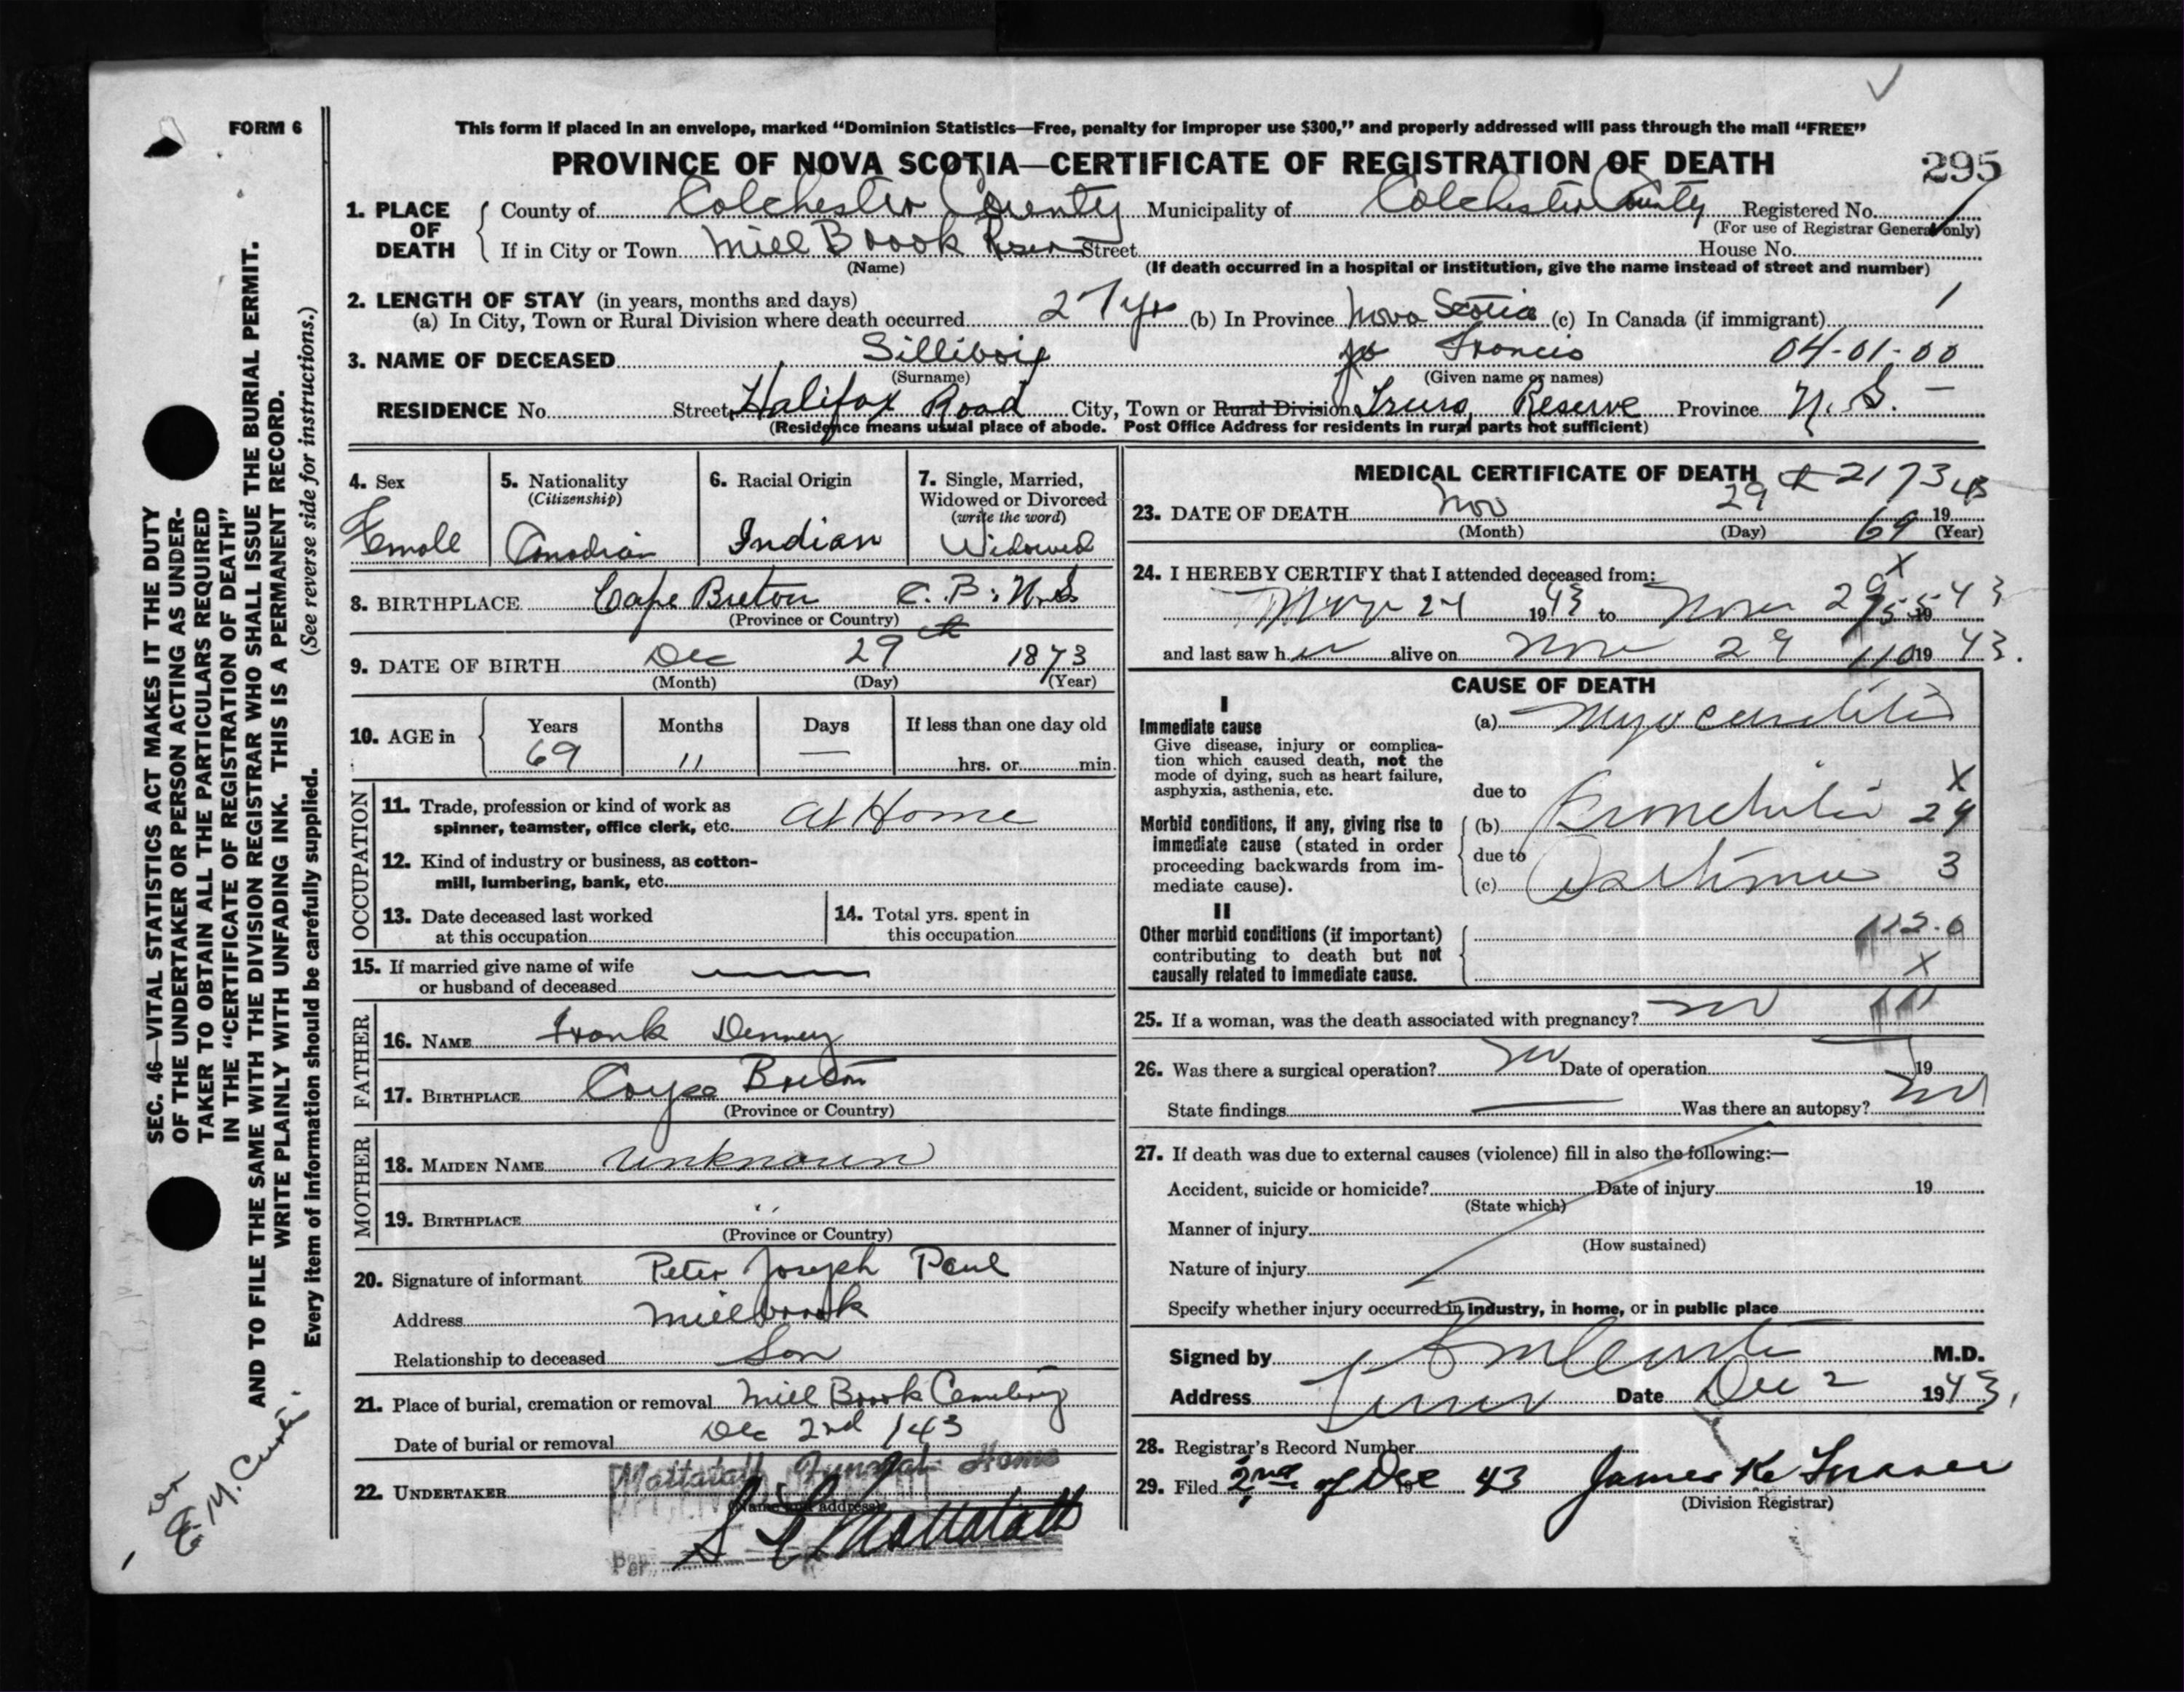 FORM 6
This form if placed in an envelope, marked “Dominion Statistics—Free, penalty for improper use $300,” and properly addressed will pass through the mail “FREE”
PROVINCE OF NOVA SCOTIA—CERTIFICATE OF REGISTRATION OF DEATH
295
1. PLACE OF DEATH
County of Colchester County Municipality of Colchester County Registered No.
(For use of Registrar General only)
If in City or Town Mill Brook Reser Street House No.
(Name) (If death occurred in a hospital or institution, give the name instead of street and number)
2. LENGTH OF STAY (in years, months and days)
(a) In City, Town or Rural Division where death occurred 27 yrs (b) In Province Nova Scotia (c) In Canada (if immigrant) 1
3. NAME OF DECEASED Silliboig Francis 04-01-00
(Surname) (Given name or names)
RESIDENCE No. Street Halifax Road City, Town or Rural Division Truro, Reserve Province N. S. —
(Residence means usual place of abode. Post Office Address for residents in rural parts not sufficient)
4. Sex
Female
5. Nationality
(Citizenship)
Canadian
6. Racial Origin
Indian
7. Single, Married,
Widowed or Divorced
(write the word)
Widowed
8. BIRTHPLACE Cape Breton C. B. N.S
(Province or Country)
9. DATE OF BIRTH Dec 29 1873
(Month) (Day) (Year)
10. AGE in
Years Months Days If less than one day old
69 11 — hrs. or min.
OCCUPATION
11. Trade, profession or kind of work as
spinner, teamster, office clerk, etc. At Home
12. Kind of industry or business, as cotton-
mill, lumbering, bank, etc.
13. Date deceased last worked
at this occupation
14. Total yrs. spent in
this occupation
15. If married give name of wife
or husband of deceased
FATHER
16. NAME Frank Denney
17. BIRTHPLACE Cape Breton
(Province or Country)
MOTHER
18. MAIDEN NAME unknown
19. BIRTHPLACE "
(Province or Country)
20. Signature of informant Peter Joseph Paul
Address Millbrook
Relationship to deceased Son
21. Place of burial, cremation or removal Mill Brook Cemetery
Date of burial or removal Dec 2nd /43
22. UNDERTAKER Mattatall Funeral Home
(Name and address)
Per Mattatall
MEDICAL CERTIFICATE OF DEATH
2173
23. DATE OF DEATH Nov 29 1943
(Month) (Day) (Year)
69
X
24. I HEREBY CERTIFY that I attended deceased from:
24 1943 to Nov 29 1943
and last saw her alive on Nov 29 1943.
CAUSE OF DEATH
I
Immediate cause
Give disease, injury or complica-
tion which caused death, not the
mode of dying, such as heart failure,
asphyxia, asthenia, etc.
(a) Myocarditis
due to
Morbid conditions, if any, giving rise to
immediate cause (stated in order
proceeding backwards from im-
mediate cause).
(b) Bronchitis
due to
(c) Asthma
X
24
3
II
Other morbid conditions (if important)
contributing to death but not
causally related to immediate cause.
112.0
X
25. If a woman, was the death associated with pregnancy? no
26. Was there a surgical operation? no Date of operation 19
State findings Was there an autopsy? no
27. If death was due to external causes (violence) fill in also the following:—
Accident, suicide or homicide? Date of injury 19
(State which)
Manner of injury
(How sustained)
Nature of injury
Specify whether injury occurred in industry, in home, or in public place
Signed by M.D.
Address Truro Date Dec 2 1943.
28. Registrar's Record Number
29. Filed 2nd of Dec 19 43 James K.
(Division Registrar)
SEC. 46—VITAL STATISTICS ACT MAKES IT THE DUTY
OF THE UNDERTAKER OR PERSON ACTING AS UNDER-
TAKER TO OBTAIN ALL THE PARTICULARS REQUIRED
IN THE “CERTIFICATE OF REGISTRATION OF DEATH”
AND TO FILE THE SAME WITH THE DIVISION REGISTRAR WHO SHALL ISSUE THE BURIAL PERMIT.
WRITE PLAINLY WITH UNFADING INK. THIS IS A PERMANENT RECORD.
Every item of information should be carefully supplied. (See reverse side for instructions.)
Dr
E M. Curtis